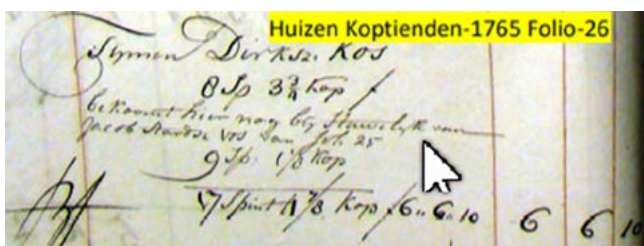 Huizen Koptienden-1765 Folio-26
Symen Dirksz. Kos
8 Sp 3 3/4 kop f
bekoomt hier nog bij Huwelyk van
Jacob Vos van fol: 25
9 Sp: 1/8 kop
17 Spint 4 7/8 kop f 6 " 6 " 10 6 6 10